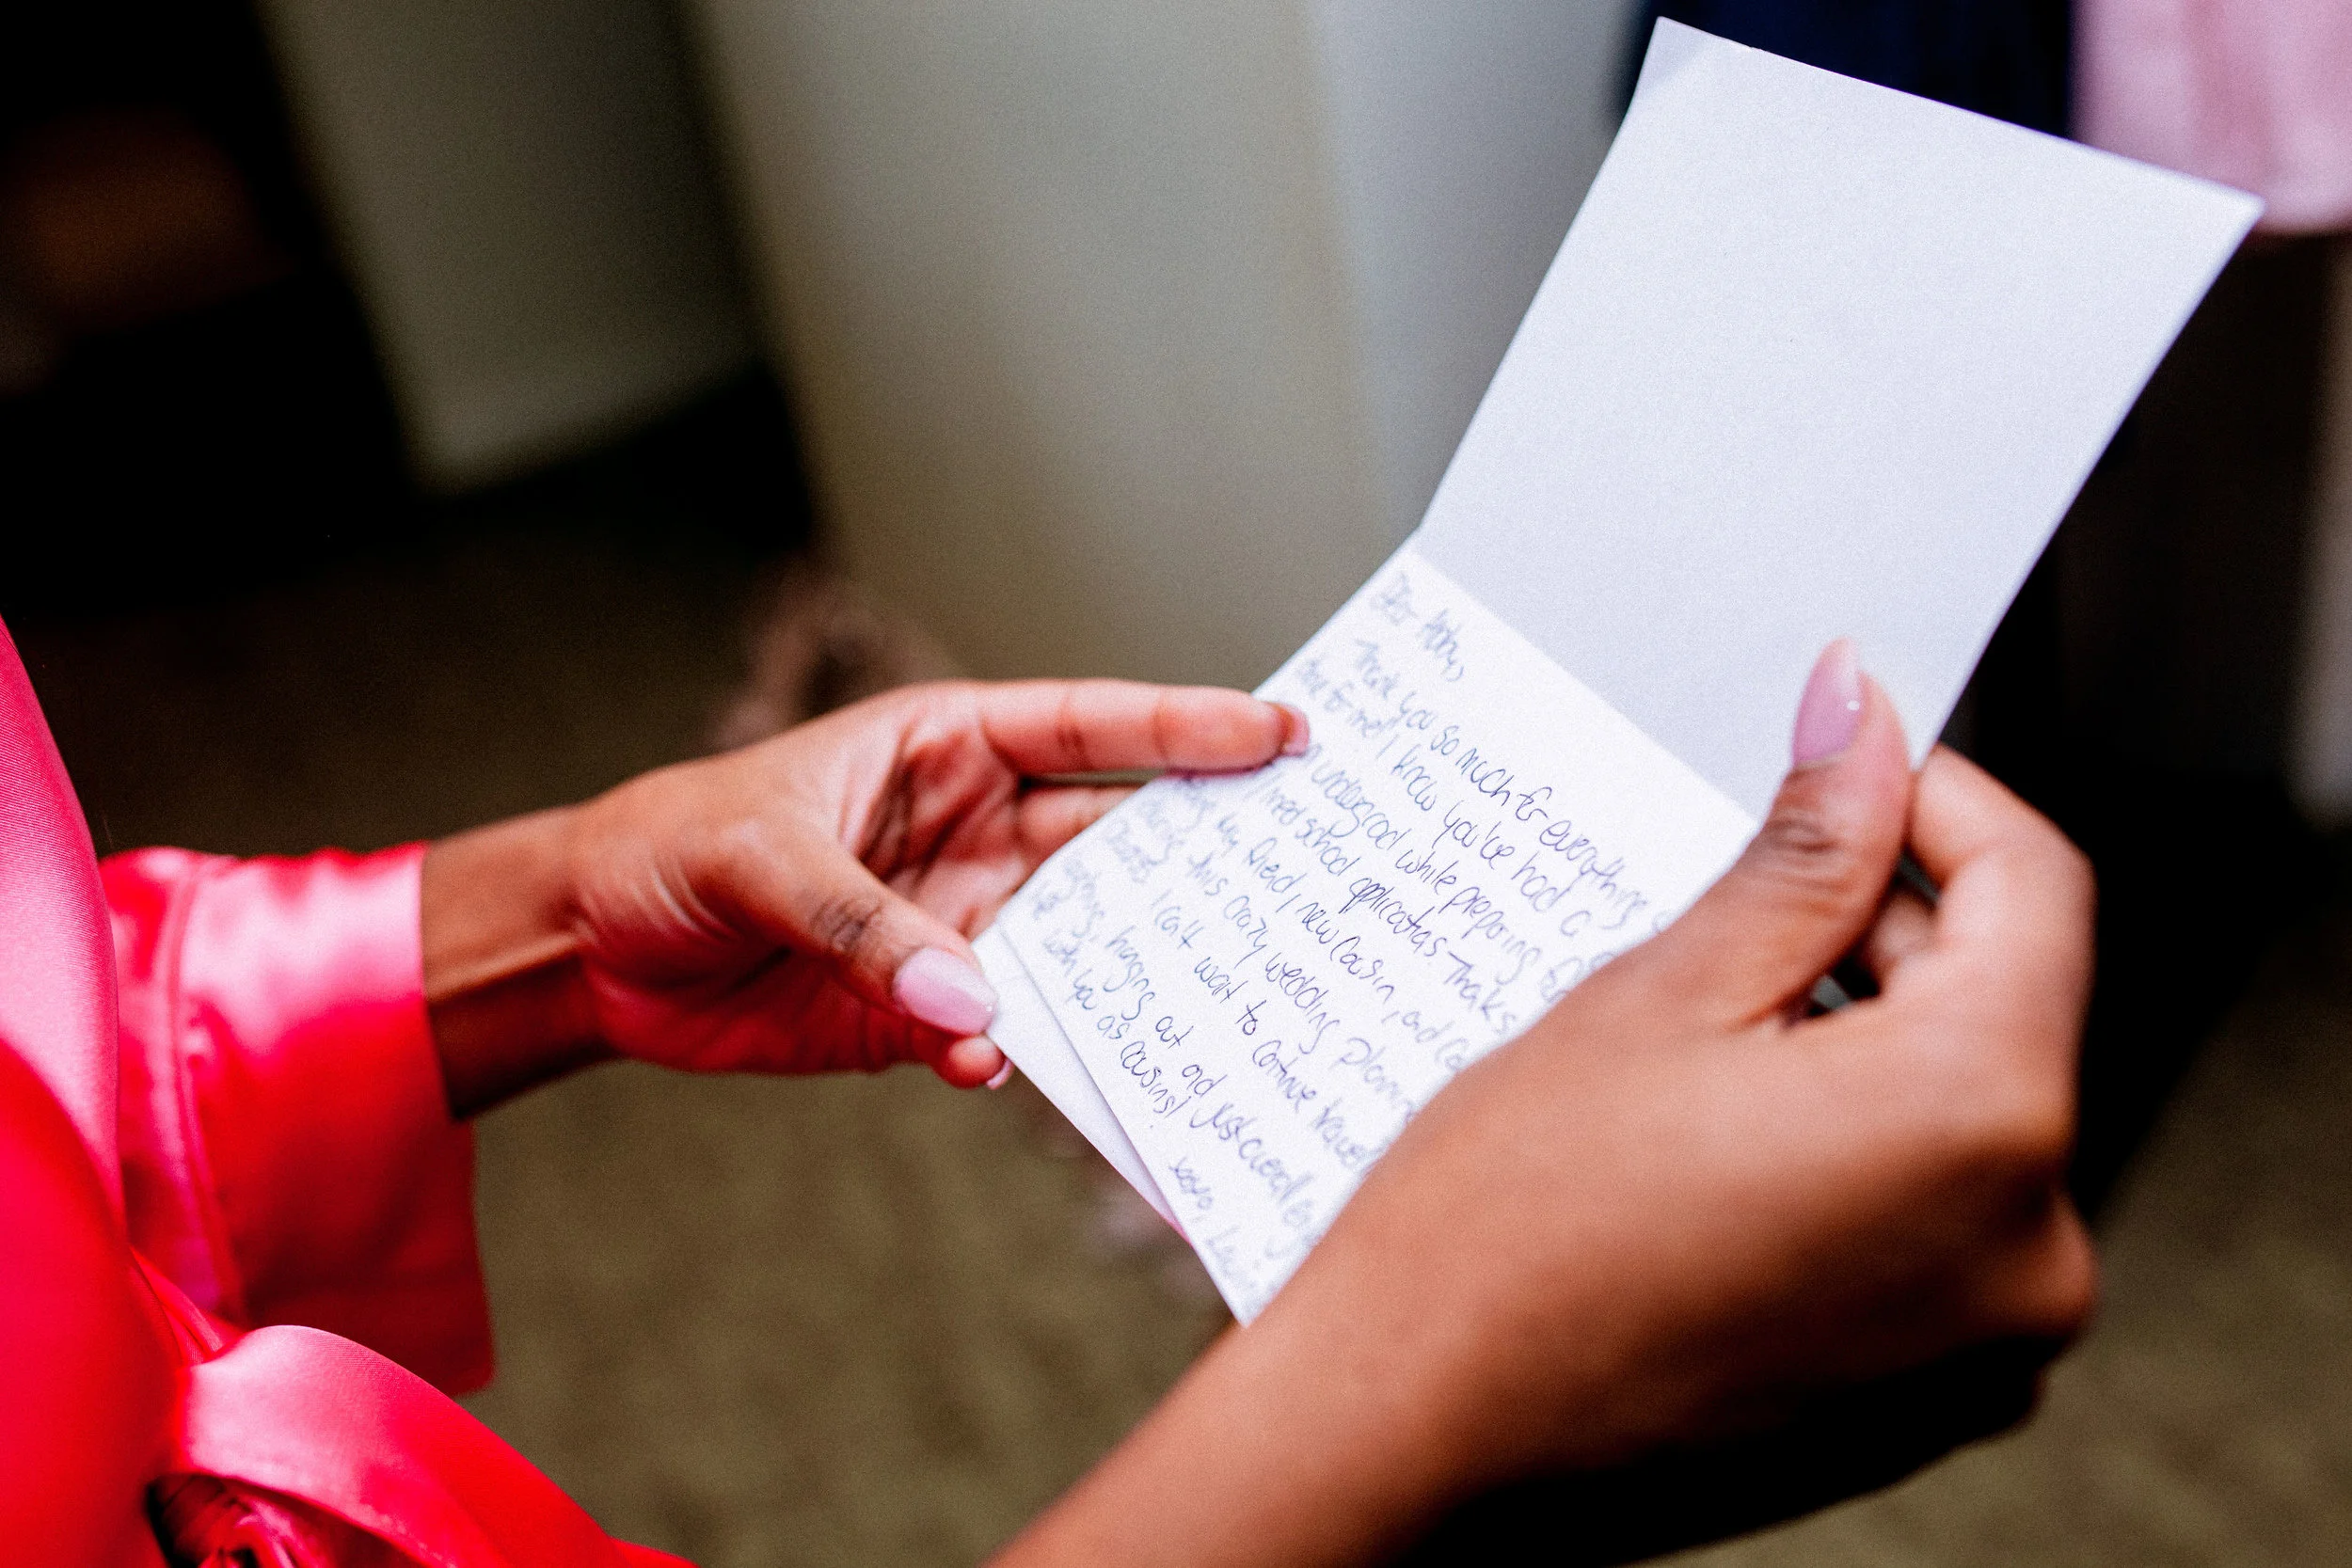 Dear Abby,
Thank you so much for everything
done for me! I know you've had a
undergrad while preparing
med school applications. Thanks
my friend, new cousin, and
this crazy wedding planning
I can't wait to continue
hanging out and just
with you as cousins!
xoxo,